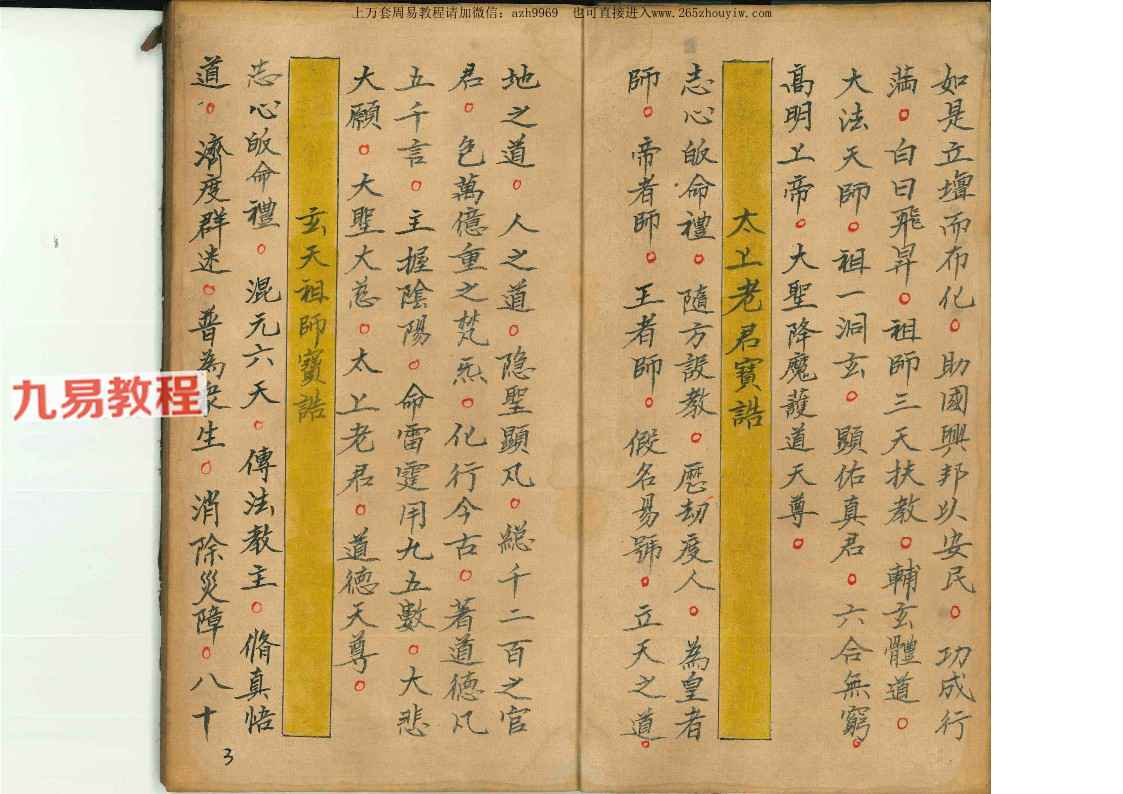 上万套周易教程请加微信：azh9969 也可直接进入www.265zhouyiw.com
如是立壇而布化。助國興邦以安民。功成行
滿。白日飛昇。祖師三天扶教。輔玄體道。
大法天師。祖一洞玄。顯佑真君。六合無窮。
高明上帝。大聖降魔護道天尊。
太上老君寶誥
志心皈命禮。隨方設教。歷劫度人。為皇者
師。帝者師。王者師。假名易號。立天之道。
地之道。人之道。隐聖顯凡。總千二百之官
君。色萬億重之梵炁。化行今古。著道德凡
五千言。主握陰陽。命雷霆用九五數。大悲
大願。大聖大慈。太上老君。道德天尊。
玄天祖師寶誥
志心皈命禮。混元六天。傳法教主。脩真悟
道。濟度群迷。普為衆生。消除災障。八十
3
九易教程